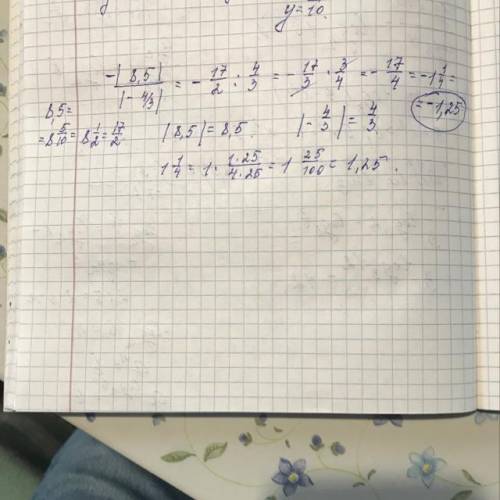 y = \frac{}{10}.
\frac{-|8,5|}{|-4/3|} = -\frac{17}{2} : \frac{4}{3} = -\frac{17}{3} \cdot \frac{3}{4} = -\frac{17}{4} = -1\frac{1}{4} =
= -1,25
8,5 =
= 8\frac{5}{10} = 8\frac{1}{2} = \frac{17}{2}
|8,5| = 8,5. |-\frac{4}{3}| = \frac{4}{3}
1\frac{1}{4} = 1 \cdot \frac{1 \cdot 25}{4 \cdot 25} = 1\frac{25}{100} = 1,25.